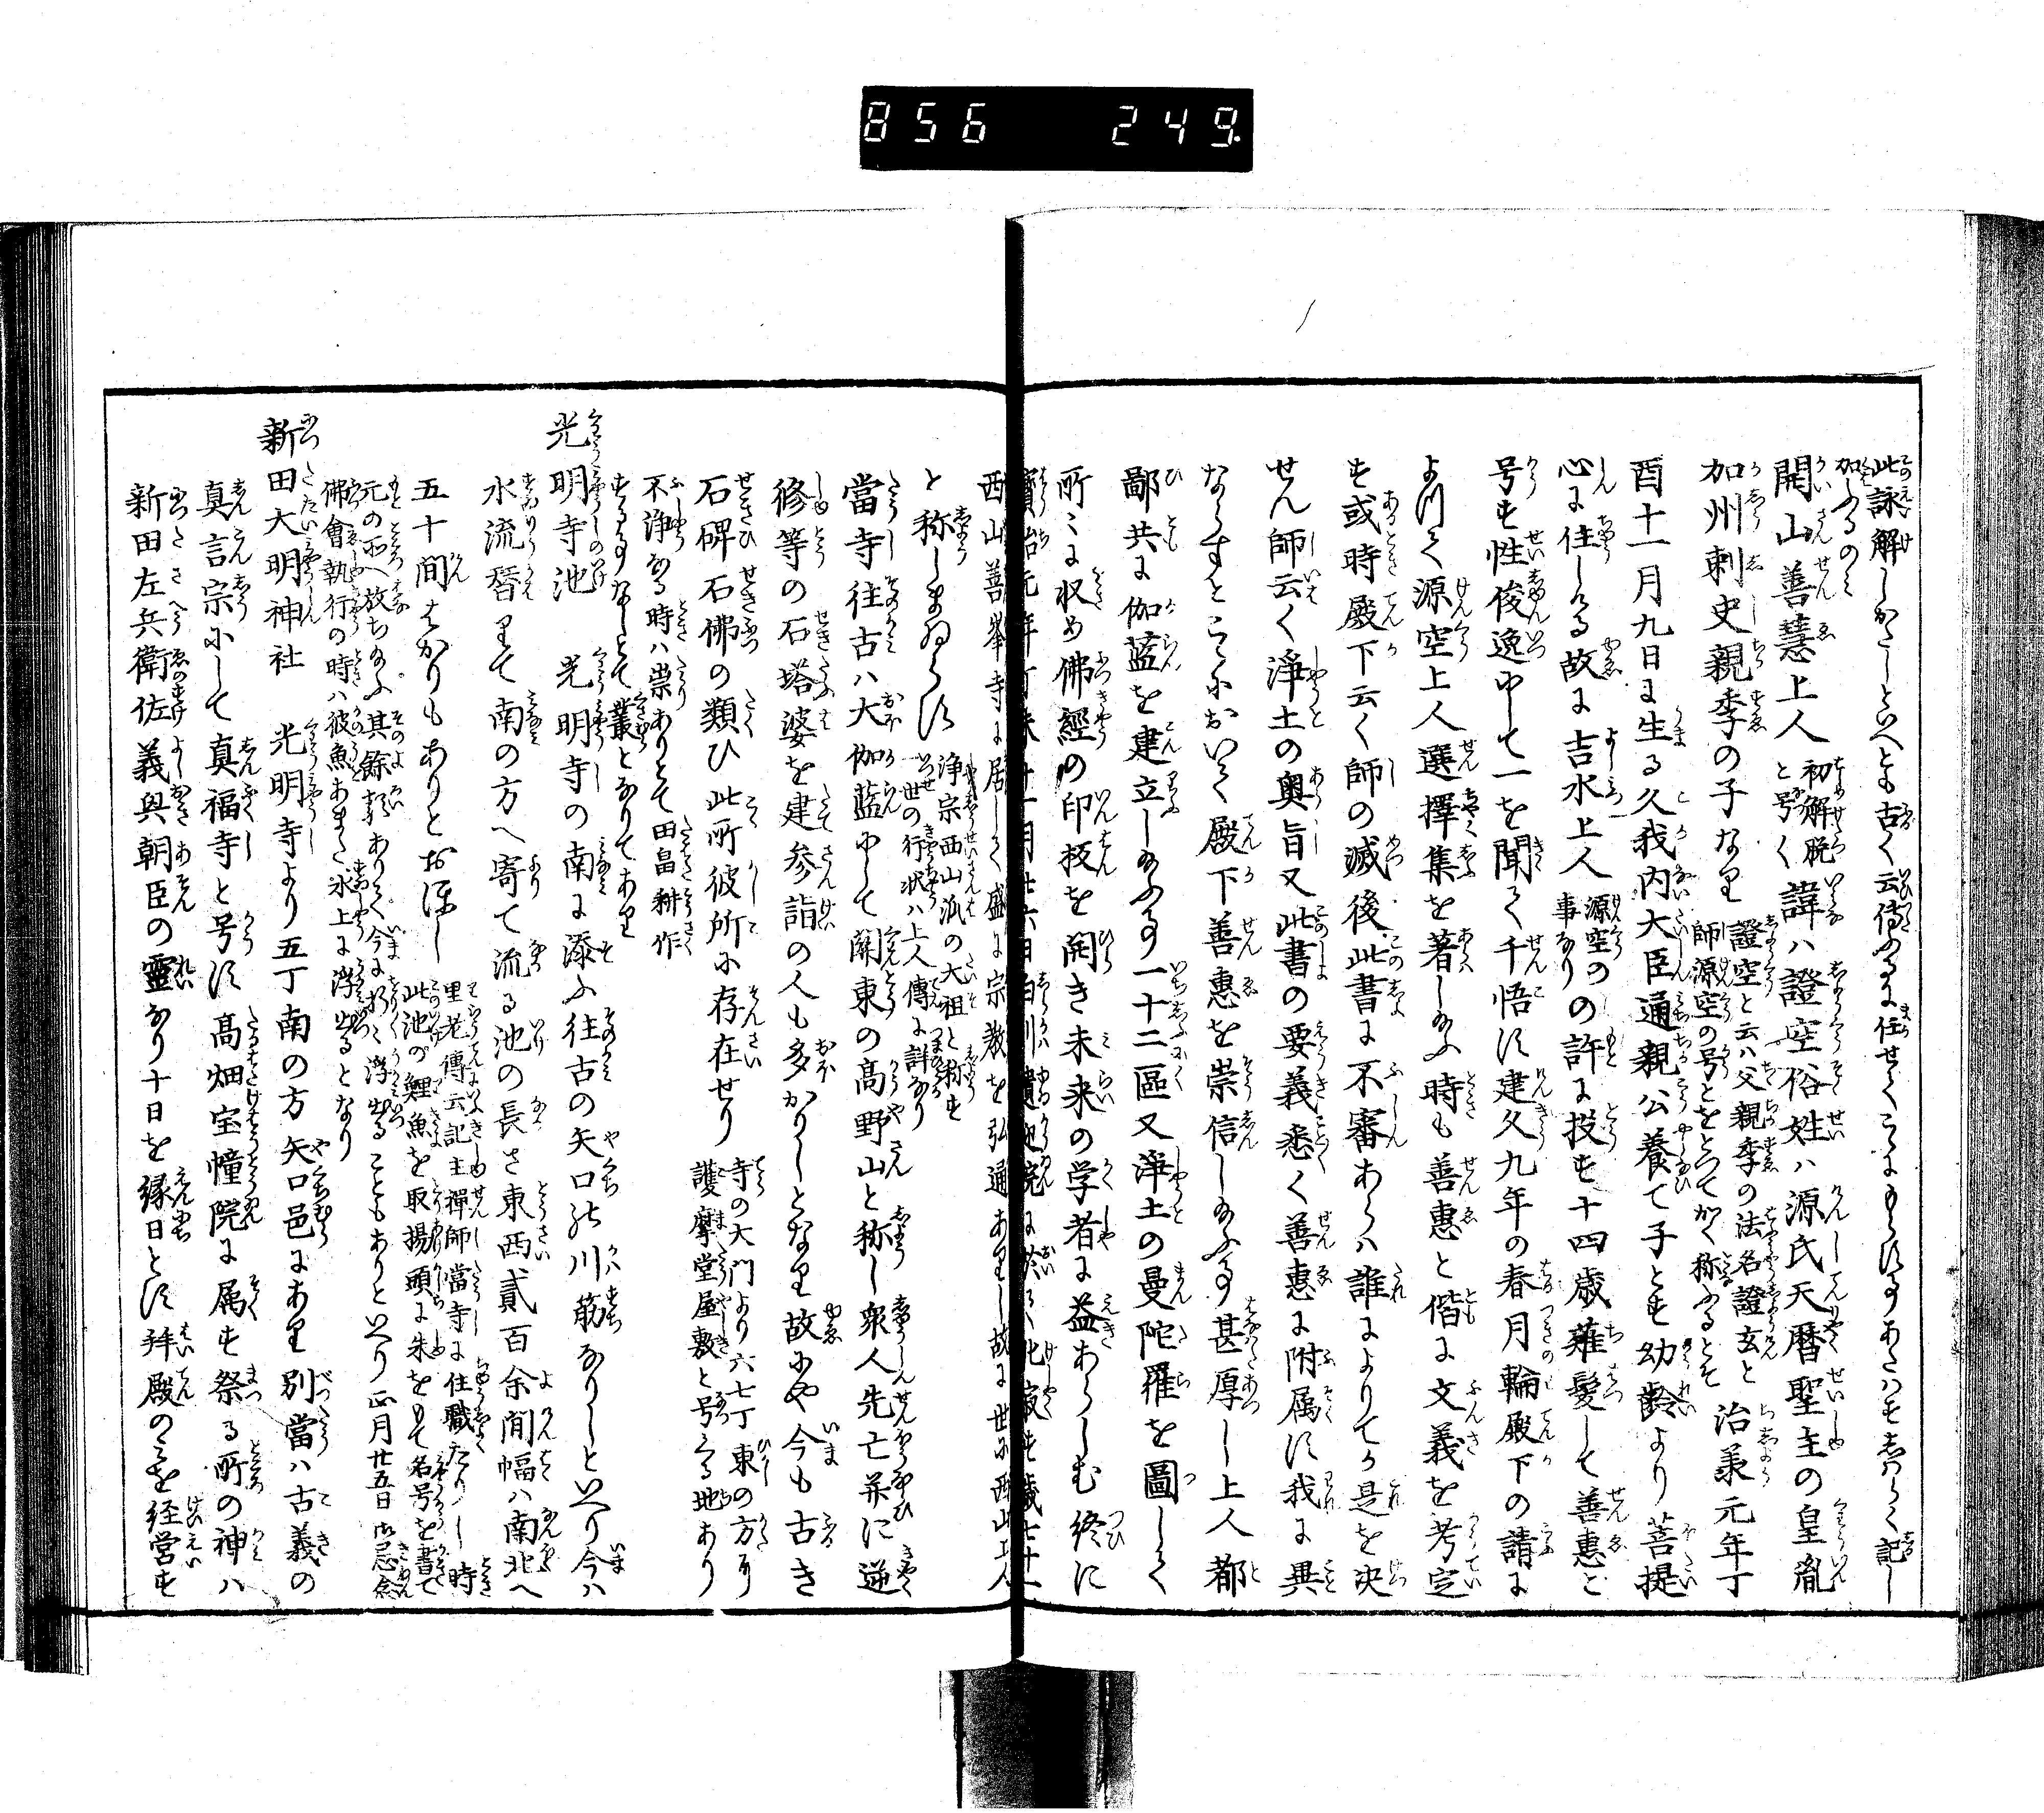 856 249
此詠解しかたしといへとも古く云傳ふるに任せてこゝにもらさすあらましを記し
加ふるのミ
開山善慧上人 初解脱と号く 諱ハ證空俗姓ハ源氏天暦聖主の皇胤
加州刺史親季の子なり 證空と云ハ父親季の法名證玄と師源空の号とをとつてかく称するとそ 治承元年丁
酉十一月九日に生る久我内大臣通親公養て子とす幼齢より菩提
心に住しる故に吉水上人 源空の事なり の許に投す十四歳薙髪して善恵と
号す性俊逸にして一を聞て千悟す建久九年の春月輪殿下の請に
よつて源空上人選擇集を著し給ふ時も善恵と偕に文義を考定
す或時殿下云く師の滅後此書に不審あらハ誰によりてか是を决
せん師云く淨土の奥旨又此書の要義悉く善恵に附属す我に異
ならすとこゝにおいて殿下善恵を崇信し給ふ事甚厚し上人都
鄙共に伽藍を建立し給ふ事一十二區又淨土の曼陀羅を圖して
所々に収め佛經の印板を開き未来の学者に益あらしむ終に
寳治元年丁未十一月廿六日白川遣迎院に於て化寂す歳七十一
西山善峯寺に居して盛に宗教を弘通ありし故に世に西山上人
と称しまゐらす 浄宗西山派の大祖と称す一世の行状ハ上人傳に詳なり
當寺往古ハ大伽藍にして關東の髙野山と称し衆人先亡并に逆
修等の石塔婆を建参詣の人も多かりしとなり故にや今も古き
石碑石佛の類ひ此所彼所に存在せり 寺の大門より六七丁東の方に護摩堂屋敷と号る地あり
不浄ある時ハ祟ありとて田畠耕作
することなしとて叢となりてあり
光明寺池 光明寺の南に添ふ往古の矢口の川筋なりしといへり今ハ
水流替りて南の方へ寄て流る池の長さ東西貳百余間幅ハ南北へ
五十間はかりもありとおほし 里老傳云記主禪師當寺に住職たりし時此池の鯉魚を取揚頭に朱をもて名号を書て
元の所へ放ち給ふ其餘類ありて今に折々浮出ることもありといへり正月廿五日御忌念
佛會執行の時ハ彼魚あまた水上に浮出るとなり
新田大明神社 光明寺より五丁南の方矢口邑にあり別當ハ古義の
真言宗にして真福寺と号す髙畑宝幢院に属す祭る所の神ハ
新田左兵衛佐義興朝臣の靈なり十日を縁日とす拜殿のミを経営す